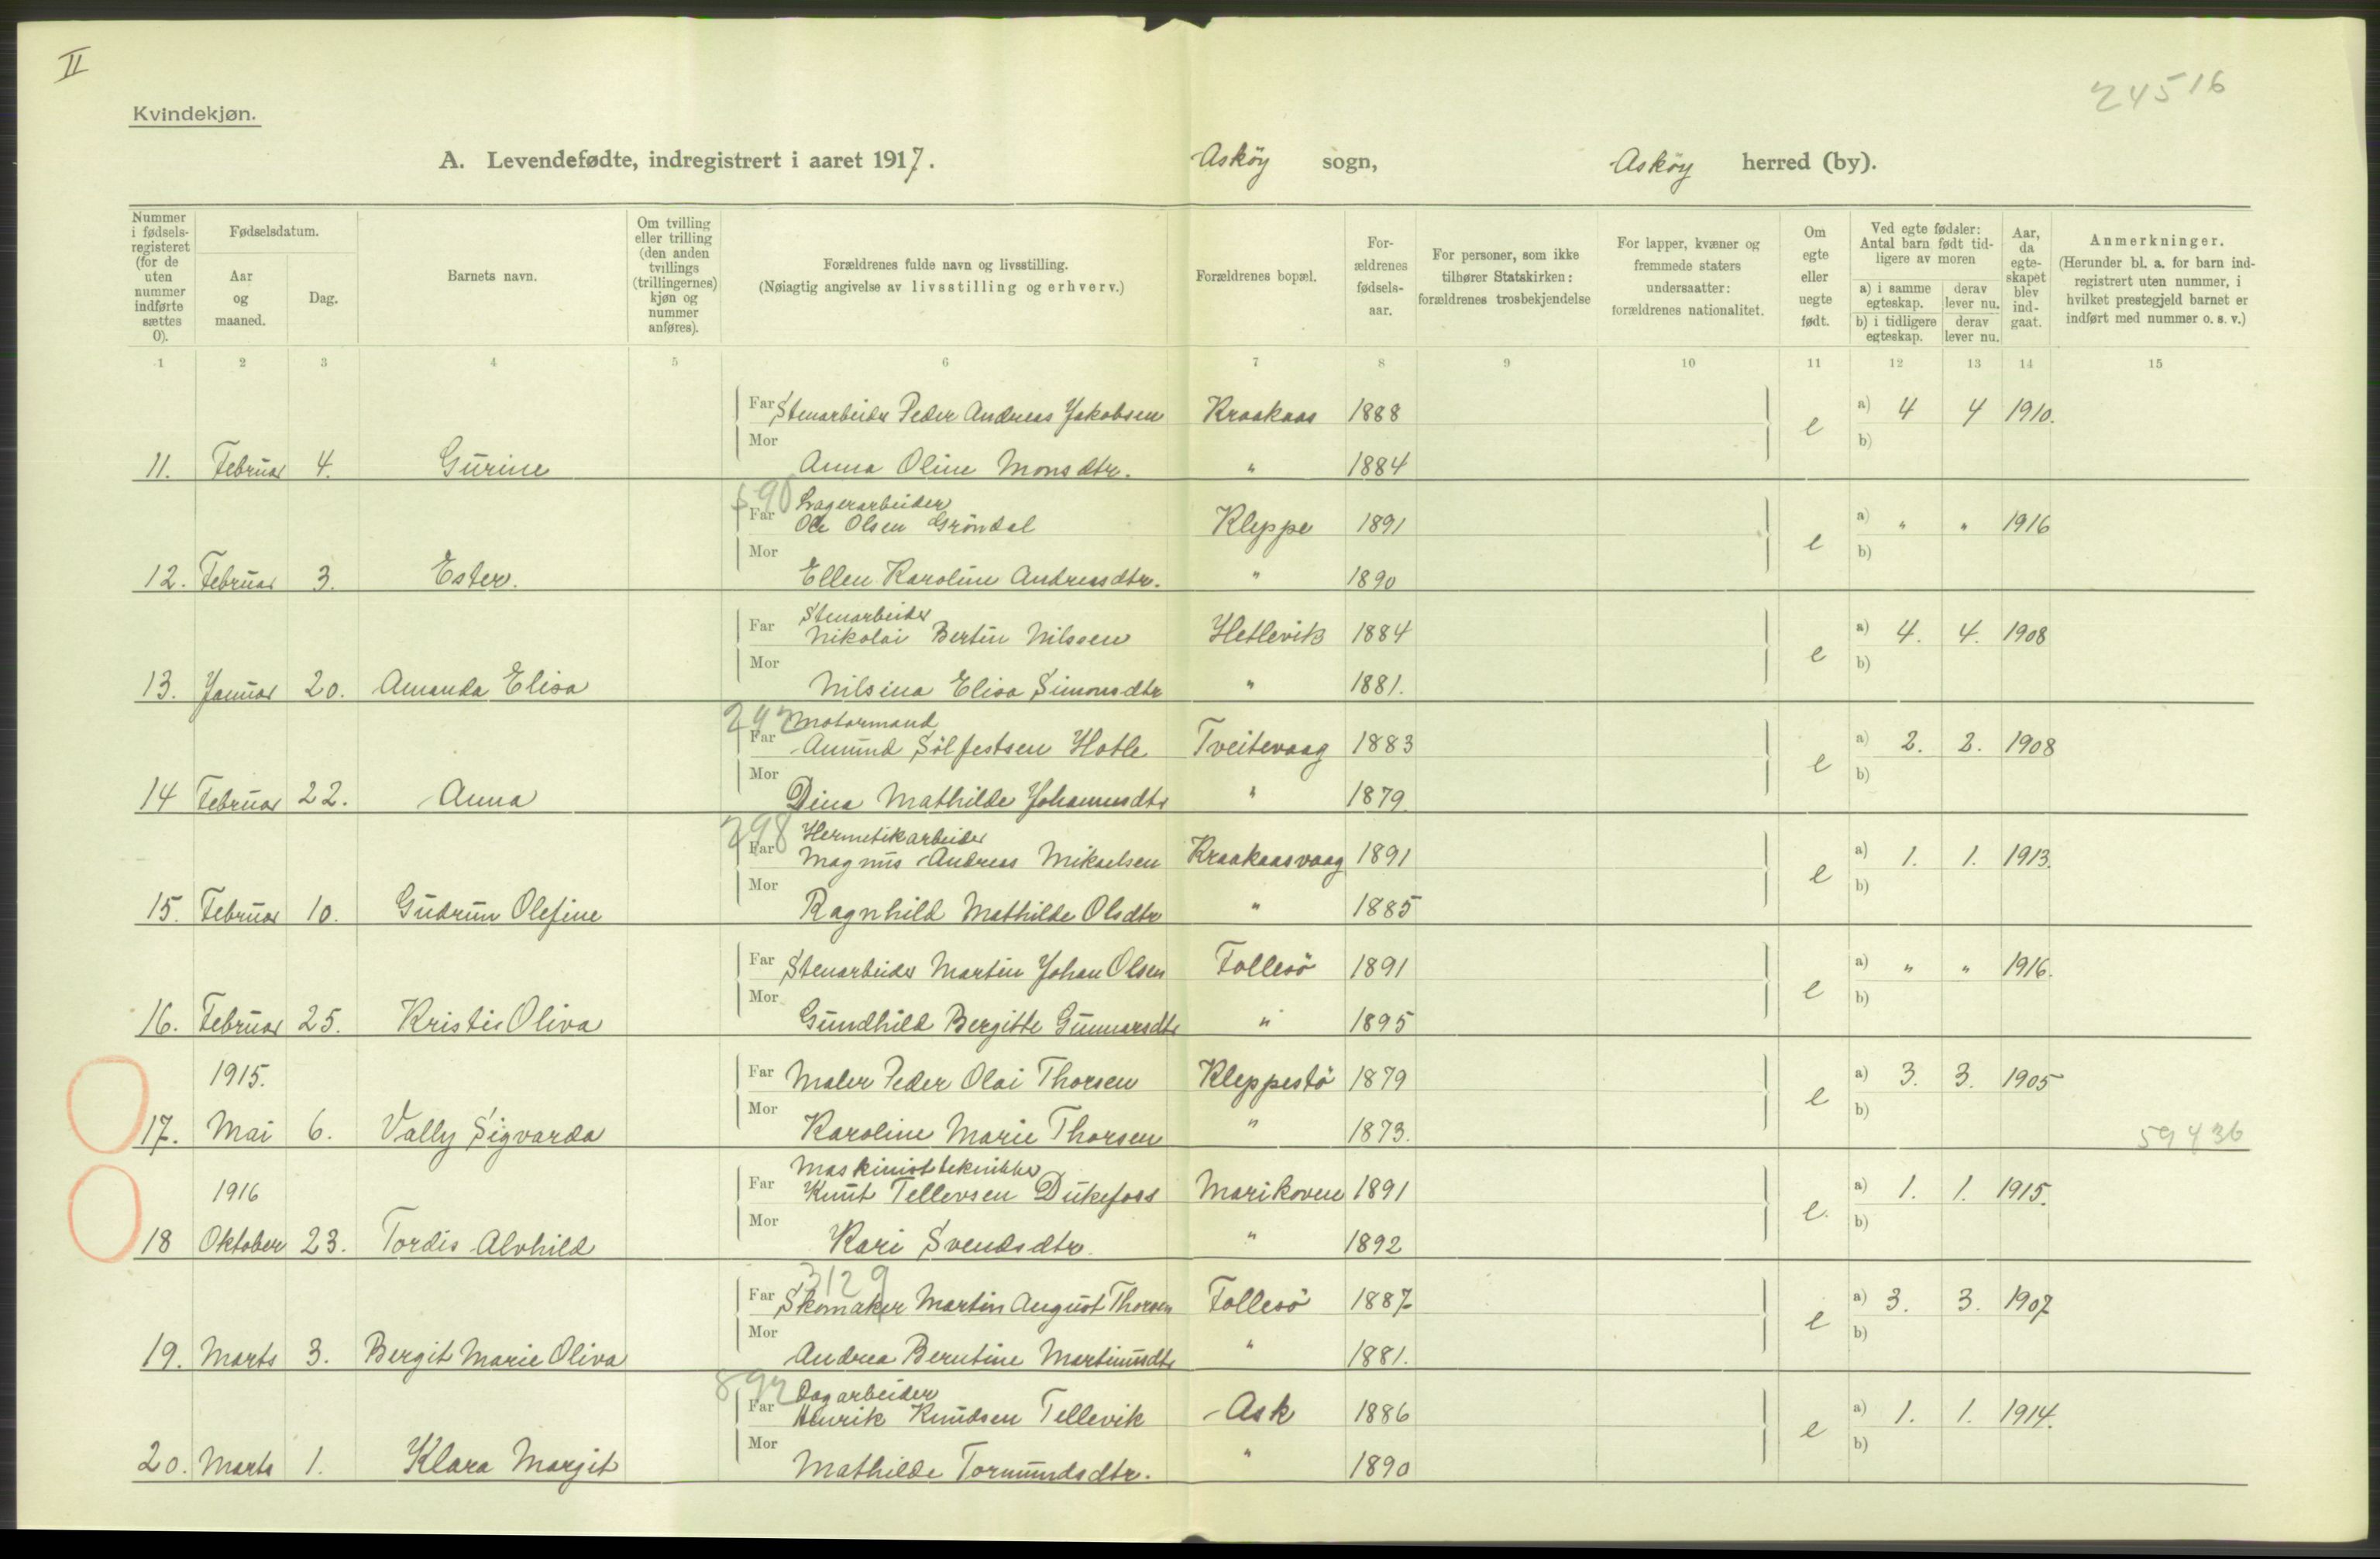 II
24516
Kvindekjøn.
A. Levendefødte, indregistrert i aaret 1917. Asköy sogn, Asköy herred (by).
Nummer i fødselsregisteret (for de uten nummer indførte sættes 0).
Fødselsdatum.
Aar og maaned.
Dag.
Barnets navn.
Om tvilling eller trilling (den anden tvillings (trillingernes) kjøn og nummer anføres).
Forældrenes fulde navn og livsstilling.
(Nøiagtig angivelse av livsstilling og erhverv.)
Forældrenes bopæl.
Forældrenes fødselsaar.
For personer, som ikke tilhører Statskirken: forældrenes trosbekjendelse
For lapper, kvæner og fremmede staters undersaatter: forældrenes nationalitet.
Om egte eller uegte født.
Ved egte fødsler: Antal barn født tidligere av moren
a) i samme egteskap. derav lever nu.
b) i tidligere egteskap. derav lever nu.
Aar, da egteskapet blev indgaat.
Anmerkninger.
(Herunder bl. a. for barn indregistrert uten nummer, i hvilket prestegjeld barnet er indført med nummer o. s. v.)
1 2 3 4 5 6 7 8 9 10 11 12 13 14 15
Far Stenarbeider Peder Andreas Jakobsen Kraakaas 1888 e a) 4 4 1910.
Mor b)
11. Februar 4. Gurine Anna Oline Monsdtr. " 1884
890 Lagerarbeider
Far Ole Olsen Gröndal Kleppe 1891 e a) " " 1916
Mor b)
12. Februar 3. Ester. Ellen Karoline Andreasdtr. " 1890
Stenarbeider
Far Nikolai Bertin Nilssen Hetlevik 1884 e a) 4. 4. 1908
Mor b)
13. Januar 20. Amanda Elisa Nilsina Elisa Simonsdtr " 1881.
292 Motormand
Far Amund Sölfestsen Hatle Tveitevaag 1883 e a) 2. 2. 1908
Mor b)
14 Februar 22. Anna Dina Mathilde Johannesdtr " 1879.
298 Hermetikarbeider
Far Magnus Andreas Mikaelsen Kraakaasvaag 1891 e a) 1. 1. 1913.
Mor b)
15. Februar 10. Gudrun Olefine Ragnhild Mathilde Olsdtr " 1885
Far Stenarbeider Martin Johan Olsen Follesö 1891 e a) " " 1916.
Mor b)
16. Februar 25. Kristie Oliva Gundhild Bergitte Gunnarsdtr " 1895
1915. Far Maler Peder Olai Thorsen Kleppestö 1879 e a) 3. 3. 1905
Mor b)
17. Mai 6. Vally Sigvarda Karoline Marie Thorsen " 1873. 59436
Maskinisttekniker
1916 Far Knut Tellevsen Dukefoss Marikoven 1891 e. a) 1. 1. 1915.
Mor b)
18 Oktober 23. Tordis Alvhild Kari Svendsdtr. " 1892
3129
Far Skomaker Martin August Thorsen Follesö 1887 e a) 3. 3. 1907
Mor b)
19. Marts 3. Bergit Marie Oliva Andrea Berntine Martinusdtr " 1881.
892 Dagarbeider
Far Henrik Knudsen Tellevik Ask 1886 e a) 1. 1. 1914.
Mor b)
20. Marts 1. Klara Margit Mathilde Tormundsdtr. " 1890